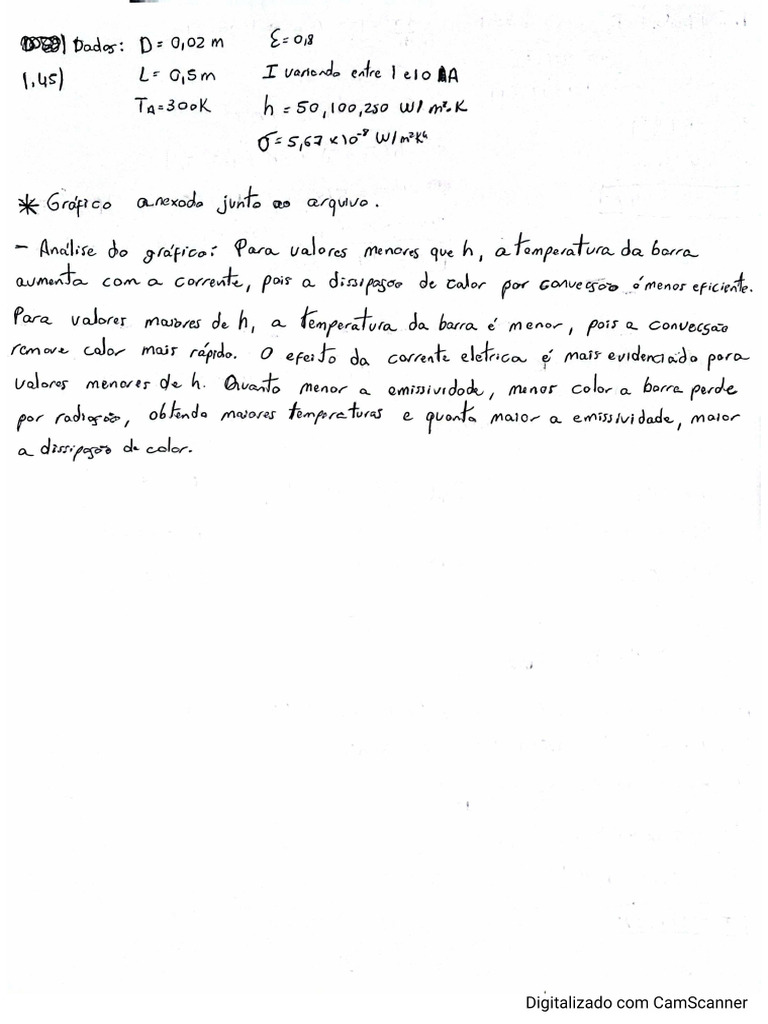 Dados: D = 0,02 m ε = 0,8
1.45) L = 0,5 m I variando entre 1 e 10 A
TA = 300K h = 50, 100, 250 W/m².K
σ = 5,67 x 10⁻⁸ W/m²K⁴
* Gráfico anexado junto ao arquivo.
- Análise do gráfico: Para valores menores que h, a temperatura da barra
aumenta com a corrente, pois a dissipação de calor por convecção é menos eficiente.
Para valores maiores de h, a temperatura da barra é menor, pois a convecção
remove calor mais rápido. O efeito da corrente eletrica é mais evidenciado para
valores menores de h. Quanto menor a emissividade, menos calor a barra perde
por radiação, obtendo maiores temperaturas e quanto maior a emissividade, maior
a dissipação de calor.
Digitalizado com CamScanner